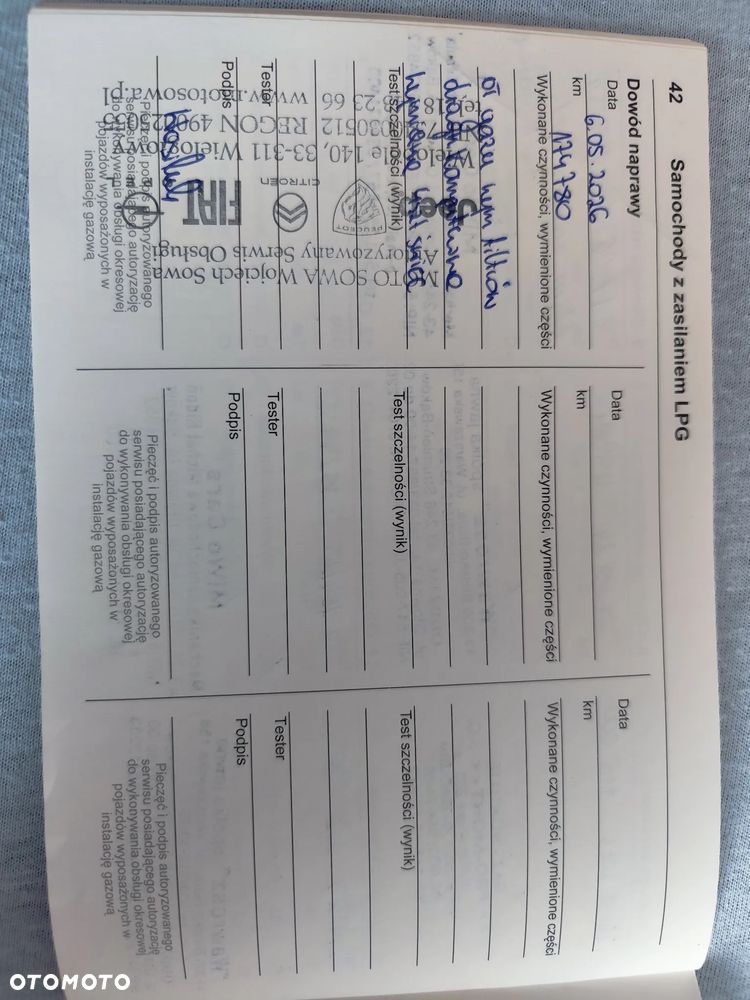 42
Samochody z zasilaniem LPG
Dowód naprawy
Data 6.05.2026
km 174780
Wykonane czynności, wymienione części
filtrów
Test szczelności (wynik)
Tester
Podpis
Pieczęć i podpis autoryzowanego
serwisu posiadającego autoryzację
do wykonywania obsługi okresowej
pojazdów wyposażonych w
instalację gazową
MOTO SOWA Wojciech Sowa
Autoryzowany Serwis Obsługi
PEUGEOT
CITROËN
FIAT
140, 33-311 Wielogłowy
REGON
Data
km
Wykonane czynności, wymienione części
Test szczelności (wynik)
Tester
Podpis
Pieczęć i podpis autoryzowanego
serwisu posiadającego autoryzację
do wykonywania obsługi okresowej
pojazdów wyposażonych w
instalację gazową
Data
km
Wykonane czynności, wymienione części
Test szczelności (wynik)
Tester
Podpis
Pieczęć i podpis autoryzowanego
serwisu posiadającego autoryzację
do wykonywania obsługi okresowej
pojazdów wyposażonych w
instalację gazową
OTOMOTO